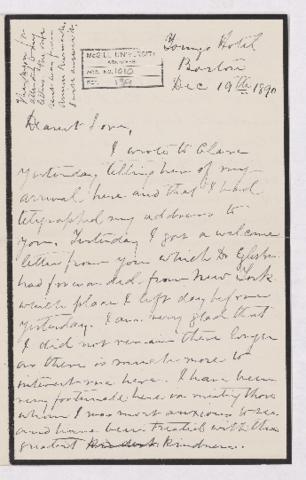 Thank you for
attending to
letter
McGILL UNIVERSITY
ARCHIVES
ACC. NO. 1010
REF. 139
Youngs Hotel
Boston
Dec 19th 1890
Dearest Love,
I wrote to Clare
yesterday telling her of my
arrival here and that I had
telegraphed my address to
you. Yesterday I got a welcome
letter from you which Dr
had forwarded from New York
which place I left day before
yesterday. I am very glad that
I did not remain there longer
as there is much more to
interest me here. I have been
very fortunate here in meeting those
whom I was most anxious to see
and have been treated with the
greatest kindness.